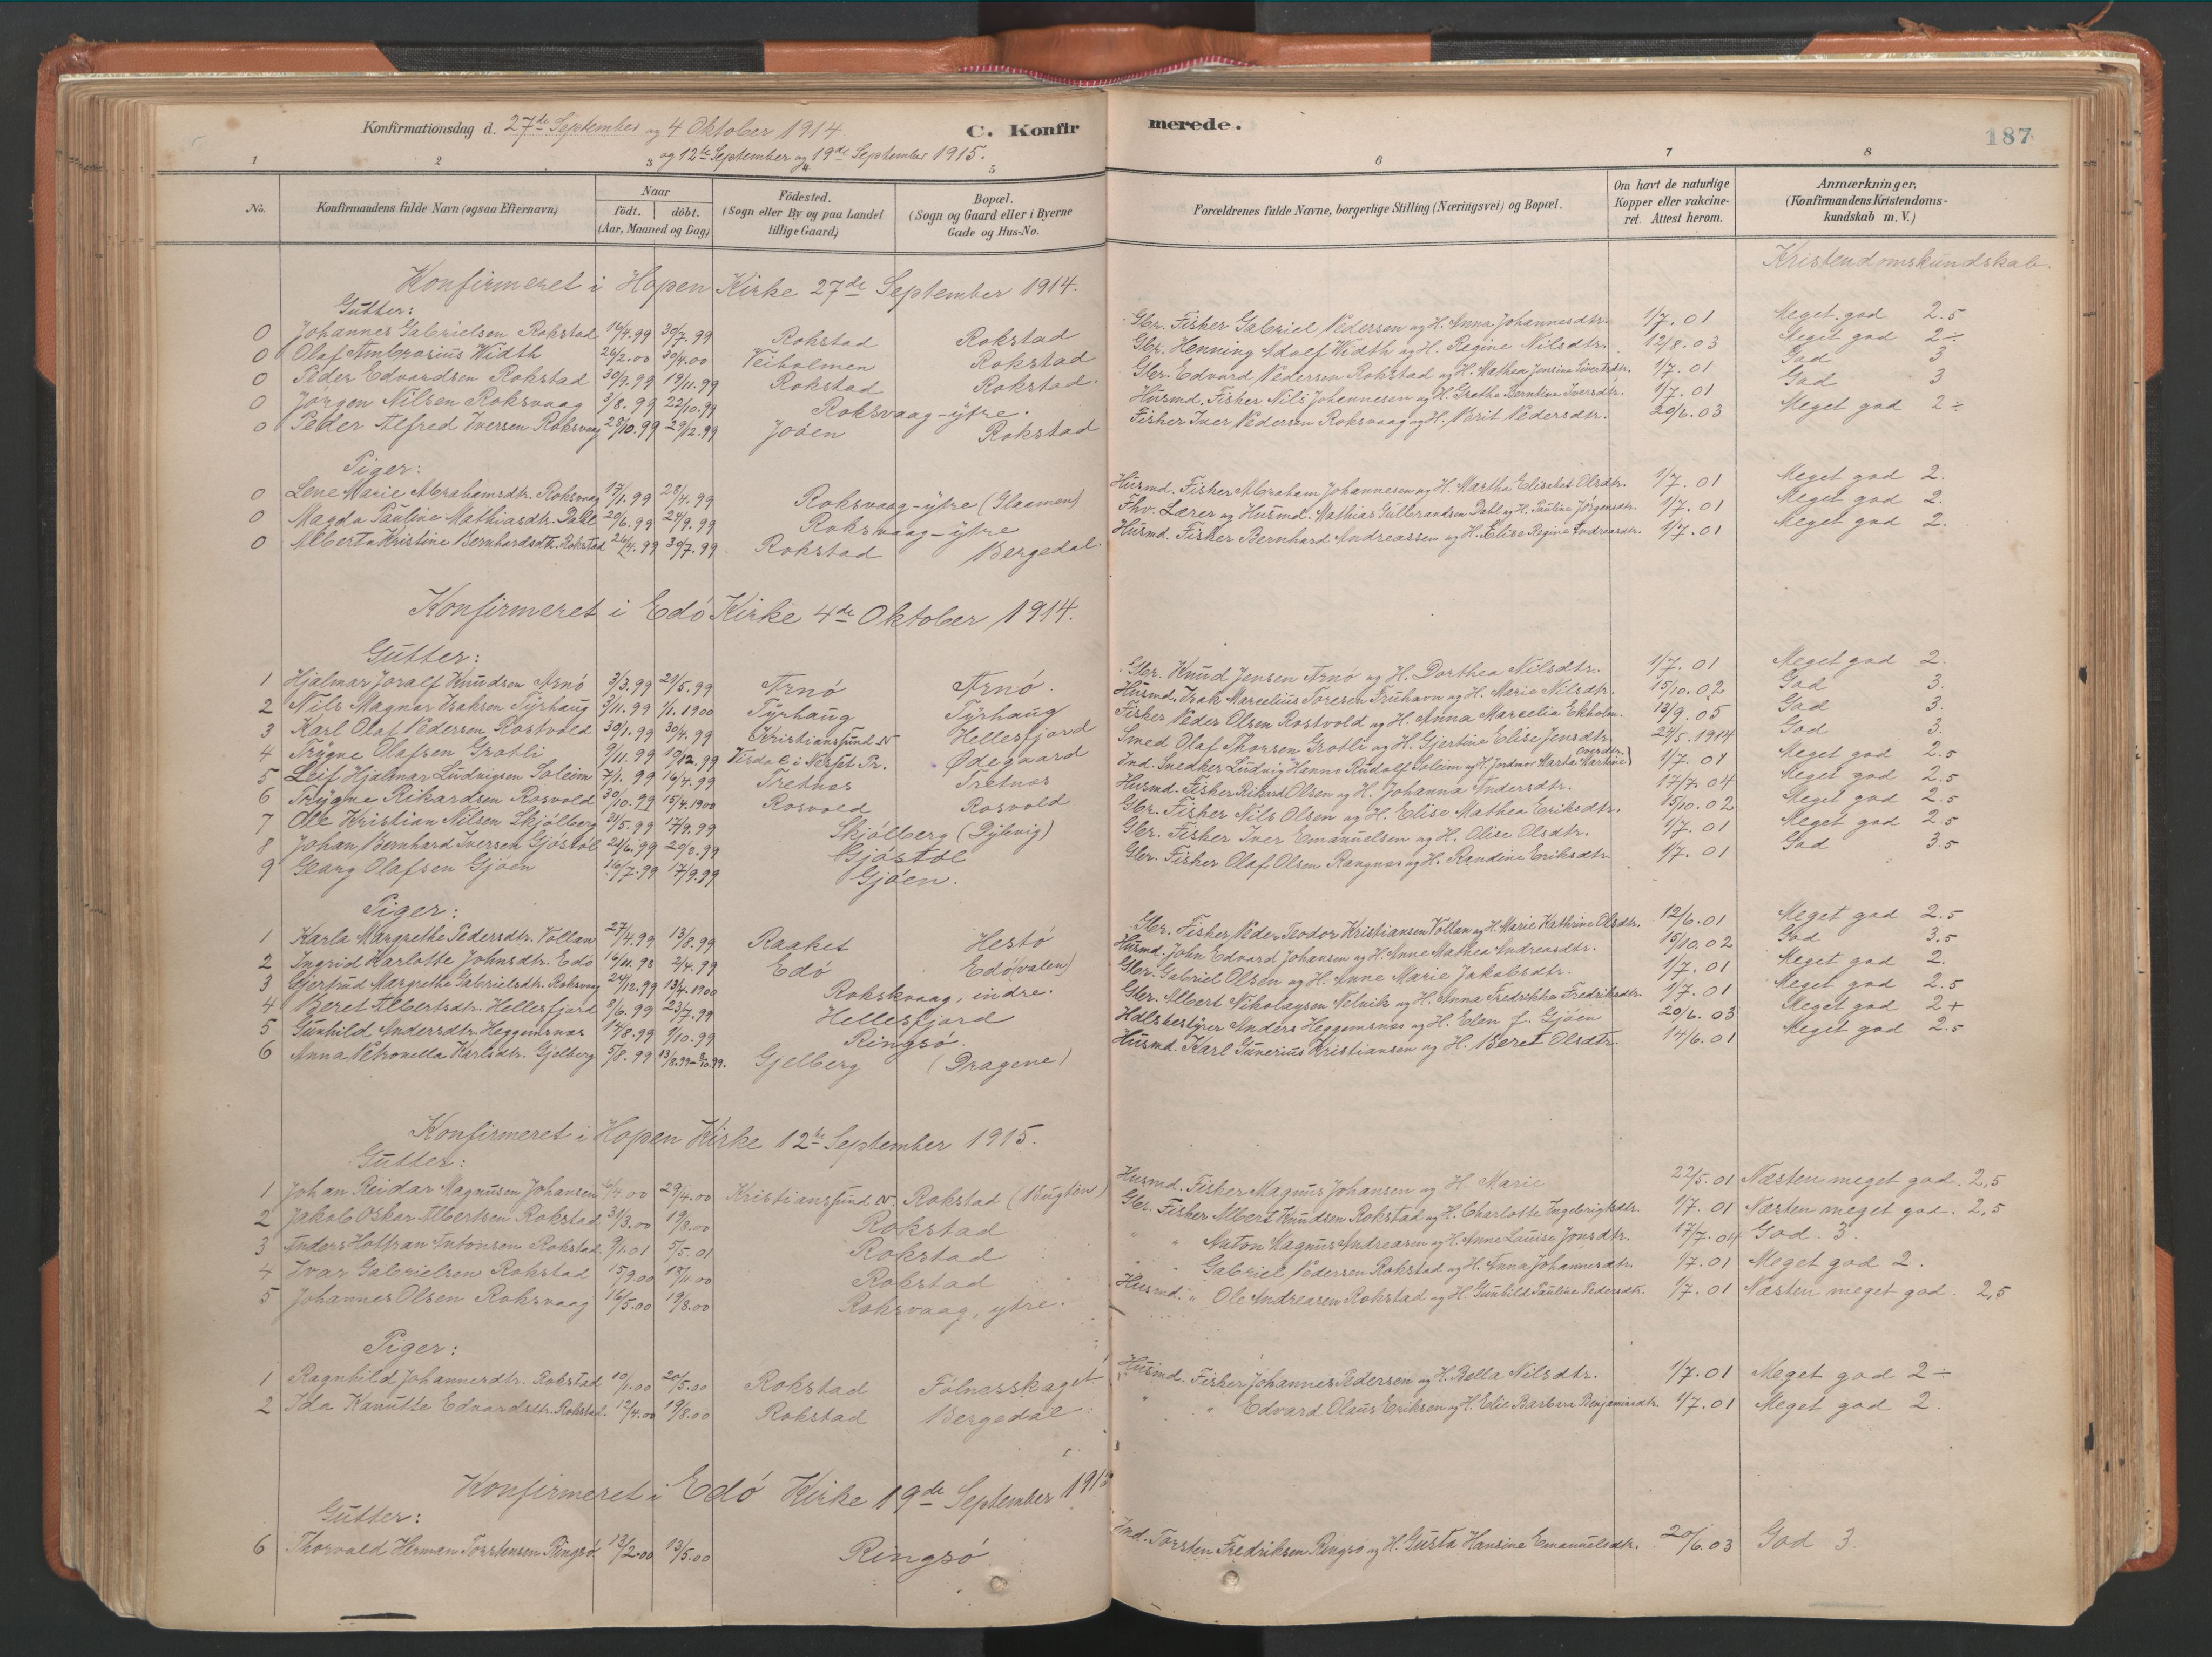 Konfirmationsdag d. 27de September og 4 Oktober 1914. C. Konfirmerede. 187
og 12te September og 19de September 1915.
1 2 3 4 5 6 7 8
No. Konfirmandens fulde Navn (ogsaa Efternavn) Naar födt. döbt. (Aar, Maaned og Dag) Födested. (Sogn eller By og paa Landet tillige Gaard) Bopæl. (Sogn og Gaard eller i Byerne Gade og Hus-No. Forældrenes fulde Navne, borgerlige Stilling (Næringsvei) og Bopæl. Om havt de naturlige Kopper eller vakcineret. Attest herom. Anmærkninger. (Konfirmandens Kristendomskundskab m. V.)
Kristendomskundskab.
Konfirmeret i Hopen Kirke 27de September 1914.
Gutter:
0 Johannes Gabrielsen Rokstad 16/4.99 30/7.99 Rokstad Rokstad Gbr. Fisker Gabriel Pedersen og H. Anna Johannesdtr. 1/7.01 Meget god 2.5
0 Olaf Ambrosius Width 26/2.00 30/4.00 Veiholmen Rokstad Gbr. Henning Adolf Width og H. Regine Nilsdtr. 12/8.03 Meget god 2÷
0 Peder Edvardsen Rokstad 30/9.99 19/11.99 Rokstad Rokstad. Gbr. Edvard Pedersen Rokstad og H. Mathea Jensine Sivertsdtr. 1/7.01 God 3
0 Jörgen Nilsen Roksvaag 3/8.99 22/10.99 Roksvaag-ytre. Husmd. Fisker Nils Johannesen og H. Grethe Berntine Iversdtr. 1/7.01 God 3
0 Peder Alfred Iversen Roksvaag 28/10.99 29/12.99 Joöen Rokstad Fisker Iver Pedersen Roksvaag og H. Berit Pedersdtr. 20/6.03 Meget god 2÷
Piger:
0 Lene Marie Abrahamsdtr. Roksvaag 17/1.99 28/4.99 Roksvaag-ytre (Glaamen) Husmd. Fisker Abraham Johannesen og H. Martha Elisabet Olsdtr. 1/7.01 Meget god 2.
0 Magda Pauline Mathiasdtr. Dahl 20/6.99 24/9.99 Roksvaag-ytre Fhv. Lærer og Husmd. Mathias Gulbrandsen Dahl og H. Pauline Jörgensdtr. 1/7.01 Meget god 2.
0 Alberta Kristine Bernhardsdtr. Rokstad 26/4.99 30/7.99 Rokstad Bergedal. Husmd. Fisker Bernhard Andreassen og H. Elise Regine Andreasdtr. 1/7.01 Meget god 2.
Konfirmeret i Edö Kirke 4de Oktober 1914.
Gutter:
1 Hjalmar Joralf Knudsen Arnö 3/3.99 21/5.99 Arnö Arnö. Gbr. Knud Jensen Arnö og H. Dorthea Nilsdtr. 1/7.01 Meget god 2.
2 Nils Magnar Isaksen Tyrhaug 3/11.99 1/1.1900 Tyrhaug Tyrhaug Husmd. Isak Marcelius Toresen Fruhavn og H. Marie Nilsdtr. 15/10.02 God 3.
3 Karl Olaf Pedersen Rostvold 30/1.99 30/4.99 Kristianssund N Hellesfjord Fisker Peder Olsen Rostvold og H. Anna Marcelia Ekholm. 13/9.05 God 3.
4 Trygve Olafsen Grotli 9/11.99 10/12.99 Visdal i Nesset Pr. Ødegaard Smed Olaf Thorsen Grotli og H. Gjertine Elise Jensdtr. 24/5.1914 God 3.
5 Leif Hjalmar Ludvigsen Soleim 7/1.99 16/4.99 Tretnæs Tretnæs Ind. Snedker Ludvig Hanno Rudolf Soleim og H. Jordmor Marta Martine Iversdtr.) 1/7.01 Meget god 2.5
6 Trygve Rikardsen Rosvold 30/10.99 15/4.1900 Rosvold Rosvold Husmd. Fisker Rikard Olsen og H. Johanna Andersdtr. 17/7.04 Meget god 2.5
7 Ole Kristian Nilsen Skjölberg 31/5.99 17/9.99 Skjölberg (Dybvig) Gbr. Fisker Nils Olsen og H. Elise Mathea Eriksdtr. 15/10.02 Meget god 2.5
8 Johan Bernhard Iversen Gjöstöl 21/6.99 20/8.99 Gjöstöl Gbr. Fisker Iver Emanuelsen og H. Olise Olsdtr. 1/7.01 Meget god 2.5
9 Georg Olafsen Gjöen 16/7.99 17/9.99 Gjöen. Gbr. Fisker Olaf Olsen Rangnæs og H. Randine Eriksdtr. 1/7.01 God 3.5
Piger:
1 Karla Margrethe Pedersdtr. Vollan 27/4.99 13/8.99 Raaket Hestö Gbr. Fisker Peder Teodor Kristiansen Vollan og H. Marie Kathrine Olsdtr. 12/6.01 Meget god 2.5
2 Ingrid Karlotte Johnsdtr. Edö 16/11.98 2/4.99 Edö Edö(valen) Husmd. John Edvard Johansen og H. Anne Mathea Andreasdtr. 15/10.02 God 3.5
3 Gjertrud Margrethe Gabrielsdtr. Roksvaag 24/12.99 13/4.1900 Rokskvaag, indre. Gbr. Gabriel Olsen og H. Anne Marie Jakobsdtr. 1/7.01 Meget god 2.
4 Beret Albertsdtr. Hellesfjord 8/6.99 23/7.99 Hellesfjord Gbr. Albert Nikolaysen Velvik og H. Anna Fredrikke Fredriksdtr. 1/7.01 Meget god 2.5
5 Gunhild Andersdtr. Heggemsnæs 14/8.99 1/10.99 Ringsö. Hdlsbestyrer Anders Heggemsnæs og H. Elen J. Gjöen 20/6.03 Meget god 2+
6 Anna Petronella Karlsdtr. Gjelberg 5/8.99 Gjelberg (Dragene) Husmd. Karl Gunerius Kristiansen og H. Beret Olsdtr. 14/6.01 Meget god 2.5
Konfirmeret i Hopen Kirke 12te September 1915.
Gutter:
1 Johan Reidar Magnusen Johansen 6/4.00 29/4.00 Kristianssund N Rokstad (Bugten) Husmd. Fisker Magnus Johansen og H. Marie 22/5.01 Næsten meget god. 2,5
2 Jakob Oskar Albertsen Rokstad 31/3.00 19/8.00 Rokstad Gbr. Fisker Albert Knudsen Rokstad og H. Charlotte Ingebrigtsdtr. 1/7.01 Næsten meget god. 2,5
3 Anders Holtran Antonsen Rokstad 9/1.01 5/5.01 Rokstad " " Anton Magnus Andreasen og H. Anne Louise Jonsdtr. 17/7.04 God. 3.
4 Ivar Gabrielsen Rokstad 15/9.00 18/11.00 Rokstad " " Gabriel Pedersen Rokstad og H. Anna Johannesdtr. 1/7.01 Meget god 2.
5 Johannes Olsen Roksvaag 16/5.00 19/8.00 Roksvaag, ytre. Husmd. " Ole Andreasen Rokstad og H. Gunhild Pauline Pedersdtr. 1/7.01 Næsten meget god. 2,5
Piger:
1 Ragnhild Johannesdtr. Rokstad 10/1.00 20/5.00 Rokstad Fölnesskaget Husmd. Fisker Johannes Pedersen og H. Bella Nilsdtr. 1/7.01 Meget god 2÷
2 Ida Kanutte Edvardsdtr. Rokstad. 12/4.00 19/8.00 Rokstad Bergedal " " Edvard Olaus Eriksen og H. Elie Barbara Benjaminsdtr. 1/7.01 Meget god 2.
Konfirmeret i Edö Kirke 19de September 1915
Gutter:
6 Thorvald Herman Torstensen Ringsö 13/2.00 13/5.00 Ringsö Ind. Torsten Fredriksen Ringsö og H. Gusta Hansine Emanuelsdtr. 20/6.03 God 3.